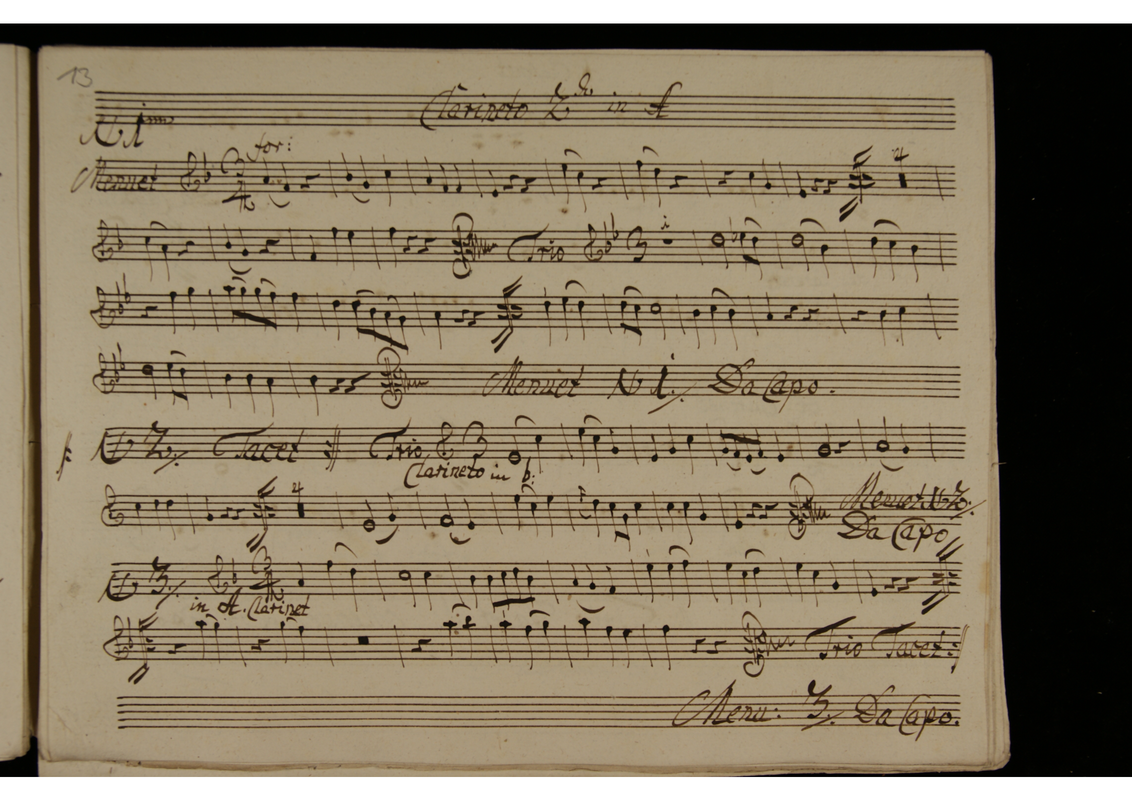 13
Clarineto 2do in A
N 1mo
for:
Menuet 3 4 4
Trio 3 1
Menuet N 1. Da Capo.
N 2. Tacet Trio 3
Clarineto in b:
4 Menuet N 2.
Da Capo
N 3. 3 4
in A. Clarinet
Trio Tacet:
Menu: 3. Da Capo.